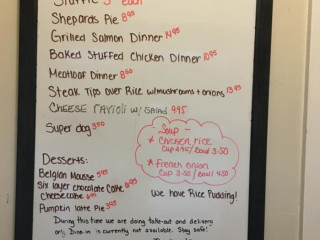 each
Shepards Pie 8.95
Grilled Salmon Dinner 14.95
Baked Stuffed Chicken Dinner 10.95
Meatloaf Dinner 8.50
Steak Tips over Rice w/mushrooms + onions 13.95
Cheese Ravioli w/ Salad 9.95
Super dog 3.50
Soup -
* Chicken Rice
Cup 2.95/Bowl 3.50
* French Onion
Cup 3.50/Bowl 4.50
Desserts:
Belgian Mousse 5.95
Six layer chocolate Cake 6.95
Cheesecake
Pumpkin latte Pie 3.95
We have Rice Pudding!
During this time we are doing take-out and delivery
only. Dine-in is currently not available. Stay safe!